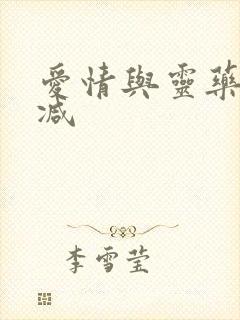 愛情與靈藥
減
李雪莹